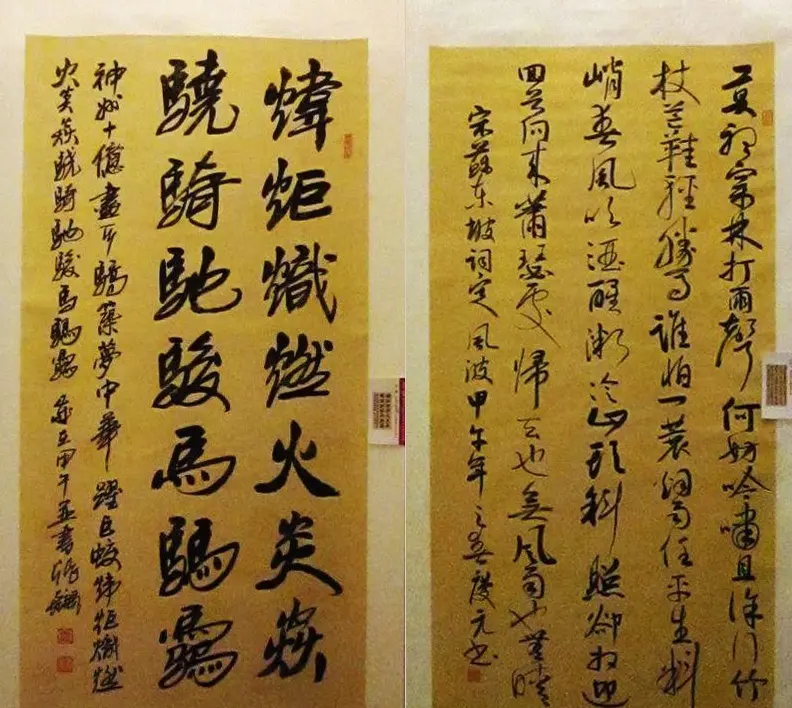 煒炬熾燃火炎焱
驍騎馳駿馬騳驫
神州十億盡可驕築夢中華躍巨蛟煒炬熾燃
火炎焱驍騎馳駿馬騳驫 歲在甲午並書
莫聽穿林打雨聲何妨吟嘯且徐行竹
杖芒鞋輕勝馬誰怕一蓑煙雨任平生料
峭春風吹酒醒微冷山頭斜照卻相迎
回首向來蕭瑟處歸去也無風雨也無晴
宋蘇東坡詞定風波甲午年之春慶元書